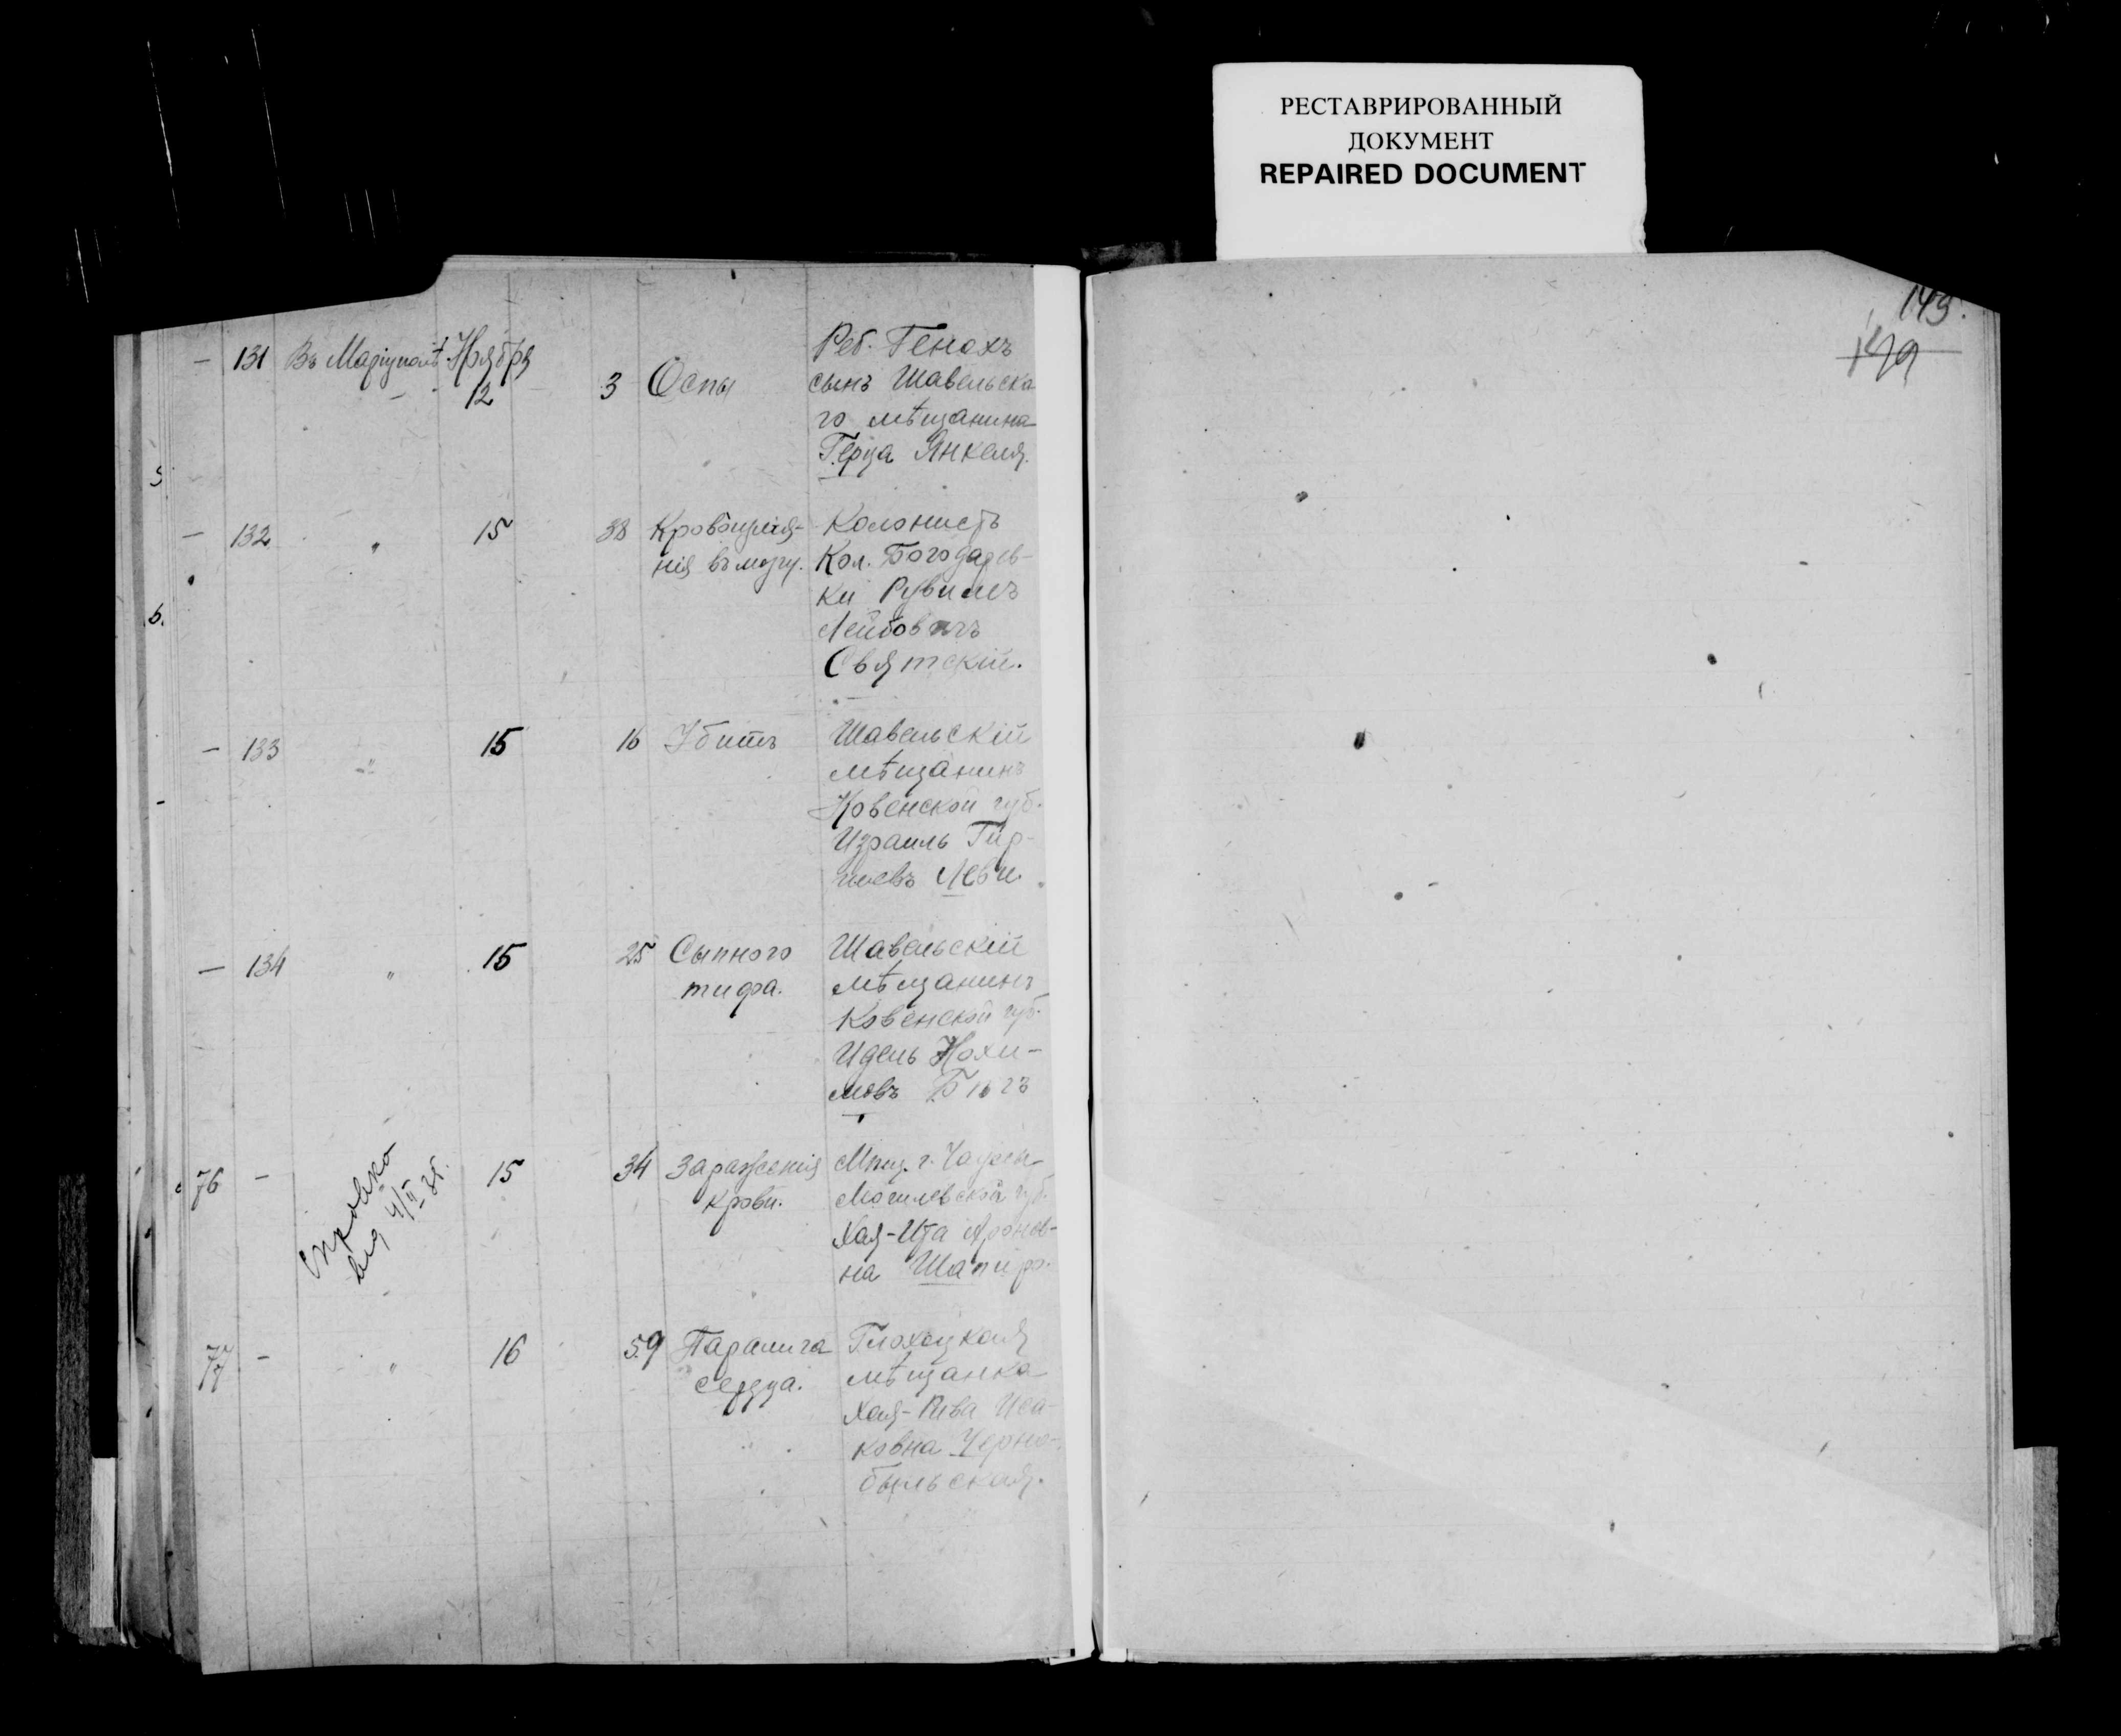 РЕСТАВРИРОВАННЫЙ
ДОКУМЕНТ
REPAIRED DOCUMENT
149.
— 131 Въ Маріуполѣ Ноября
12 3 Оспы
Реб. Генохъ
сынъ Шавельска
го мѣщанина
Герца Янкеля.
— 132 " 15 38 Кровоизлія-
нія въ мозгу.
Колонистъ
Кол. Богодаров-
ки Рувимъ
Лейбовичъ
Святскій.
— 133 " 15 16 Убитъ
Шавельскій
мѣщанинъ
Ковенской губ.
Израиль Гир-
шевъ Леви.
— 134 " 15 25 Сыпного
тифа.
Шавельскій
мѣщанинъ
Ковенской губ.
Идель Нохи-
мовъ
76 — 15 34 Зараженія
крови.
Справка
выд 4/II 25.
Мѣщ. г. Чаусы
Могилевской губ.
Хая-Ита Аронов-
на Шапиро.
77 — " 16 59 Паралича
сердца.
мѣщанка
Хая-Рива Иса-
ковна Черно-
быльская.